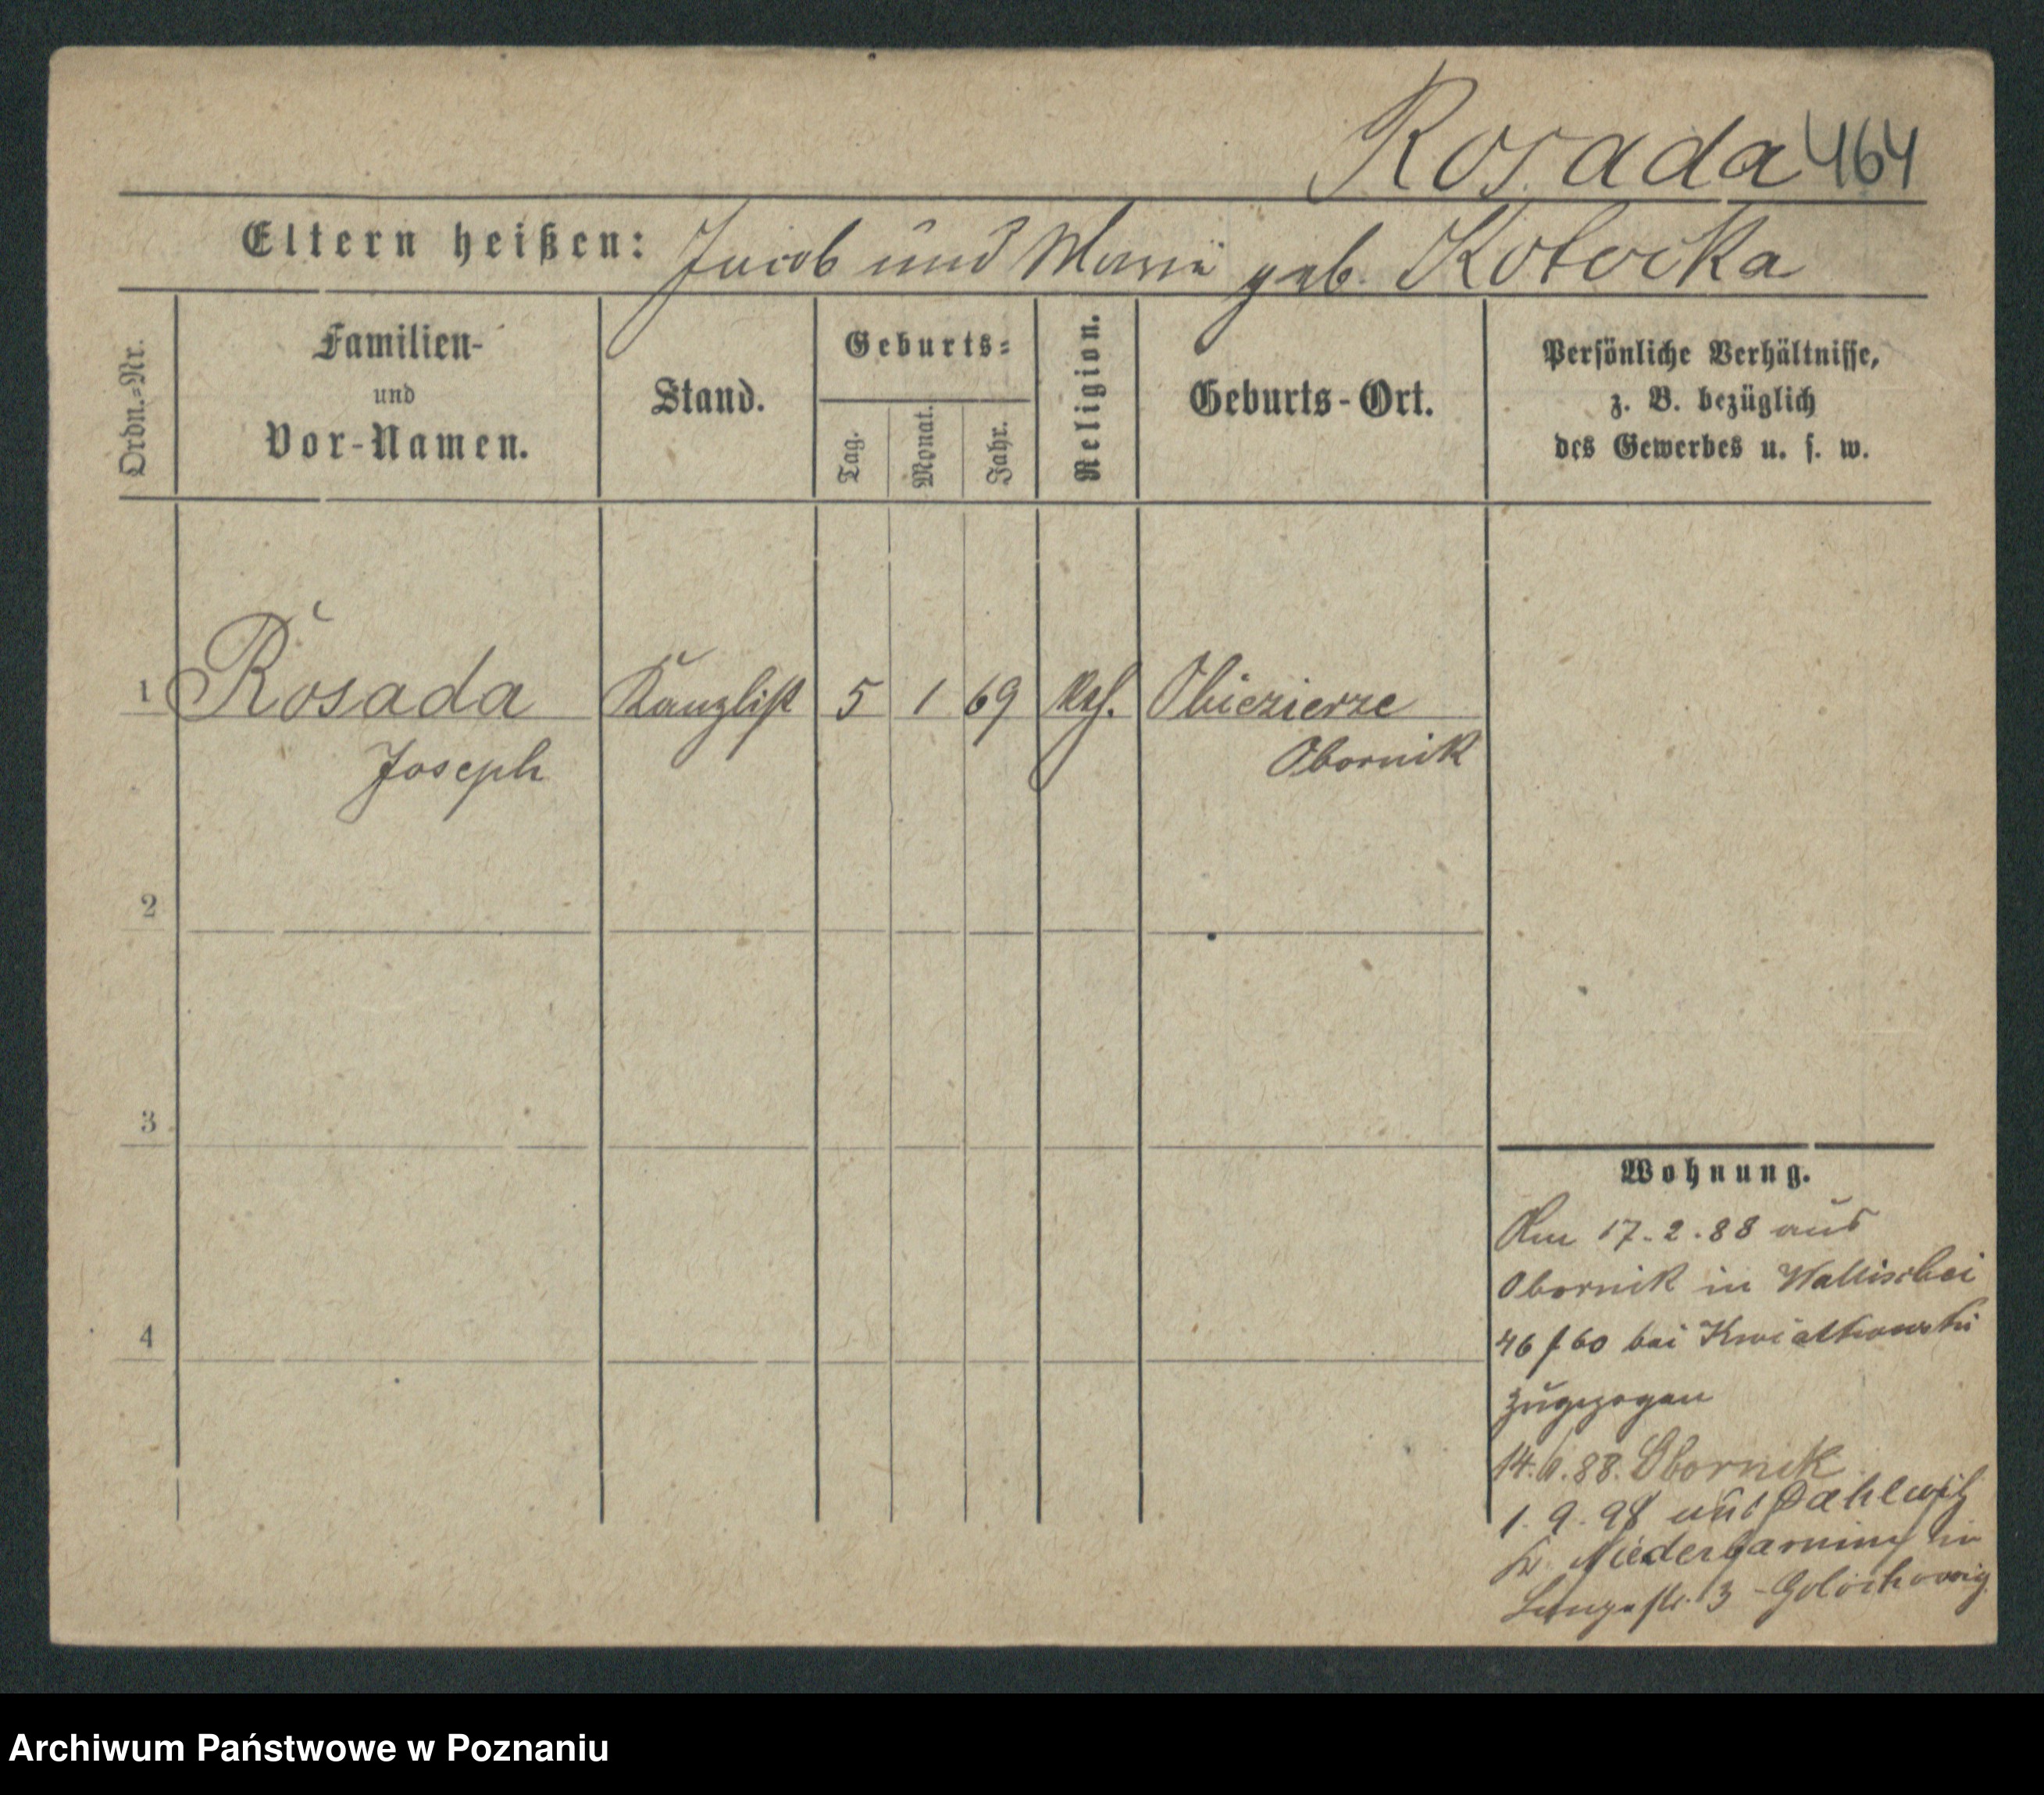 Rosada 464
Eltern heißen: Jacob und Maria geb. Kotecka
Ordn.=Nr.
Familien-
und
Vor-Namen.
Stand.
Geburts=
Tag.
Monat.
Jahr.
Religion.
Geburts-Ort.
Persönliche Verhältnisse,
z. B. bezüglich
des Gewerbes u. s. w.
1 Rosada Kanzlist 5 1 69 kath. Obiezierze
Joseph Obornik
2
3
4
Wohnung.
Am 17.2.88 aus
Obornik in Wallischei
46/60 bei Kwiatkowski
zugezogen
14.6.88. Obornik
1.9.98 aus Dahlwitz
Kr. Niederbarnim in
Langestr. 3
Archiwum Państwowe w Poznaniu